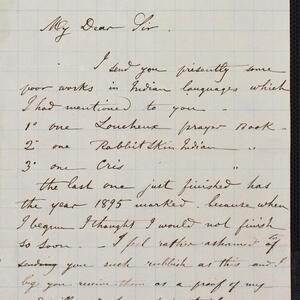 My Dear Sir.
I send you presently some
poor works in Indian languages which
I had mentioned to you -
1° one Loucheux prayer Book -
2° one Rabbit Skin Indian "
3° one Cris "
the last one just finished has
the year 1895 marked. because when
I begun I thought I would not finish
so soon - I feel rather ashamed of
sending you such rubbish as this and I
beg you receive them as a proof of my